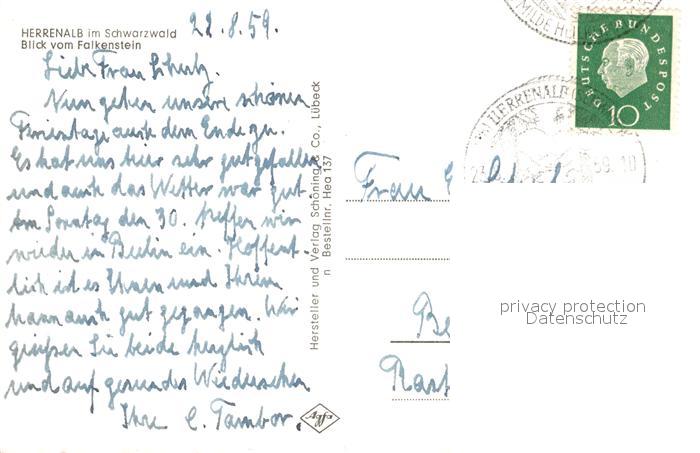 22.8.59.
HERRENALB im Schwarzwald
Blick vom Falkenstein
Liebe Frau Schulz,
Nun gehen unsere schönen
Ferientage auch dem Ende zu.
Es hat uns hier sehr gut gefallen
und auch das Wetter war gut.
Am Sonntag den 30. treffen wir
wieder in Berlin ein. Hoffent-
lich ist es Ihnen und Ihrem
Mann auch gut gegangen. Wir
grüßen Sie beide herzlich
und auf gesundes Wiedersehen
Ihre C. Tambor.
Agfa
Hersteller und Verlag Schöning & Co., Lübeck
n Bestellnr. Hea 137
DEUTSCHE BUNDESPOST
10
MILDE
HERRENALB
59.10
Frau
Be
Rast
privacy protection
Datenschutz